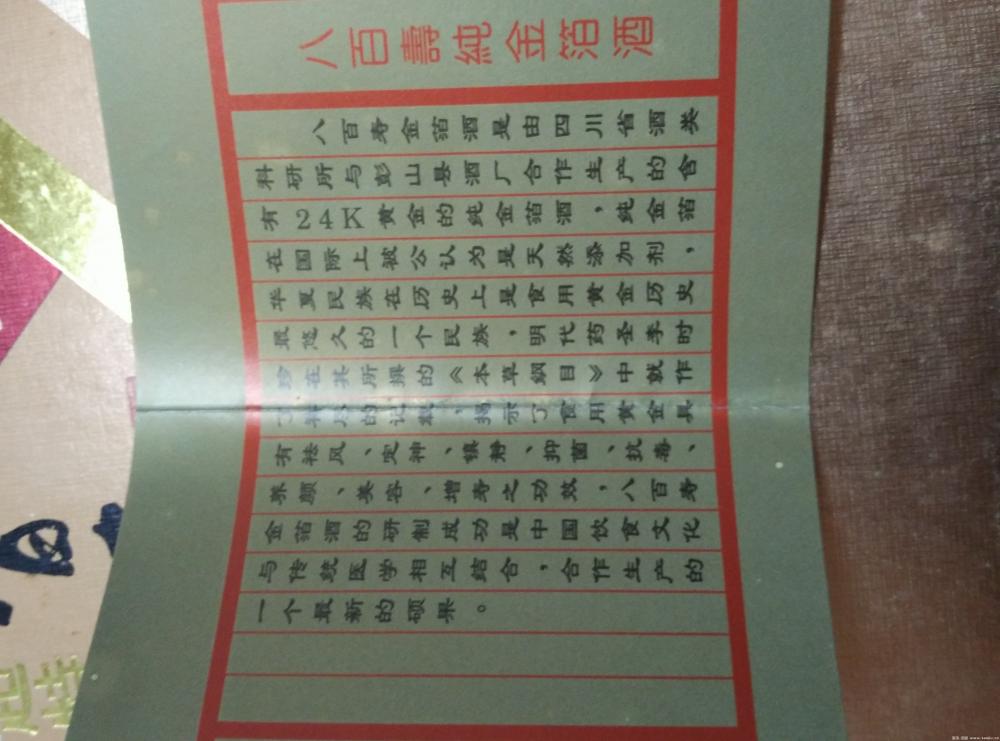 八百壽純金箔酒
八百寿金箔酒是由四川省酒类
科研所与彭山县酒厂合作生产的含
有24K黄金的纯金箔酒，纯金箔
在国际上被公认为是天然添加剂，
华夏民族在历史上是食用黄金历史
最悠久的一个民族，明代药圣李时
珍在其所撰的《本草纲目》中就作
了详尽的记载，揭示了食用黄金具
有祛风、定神、镇静、抑菌、抗毒、
养颜、美容、增寿之功效，八百寿
金箔酒的研制成功是中国饮食文化
与传统医学相互结合，合作生产的
一个最新的硕果。